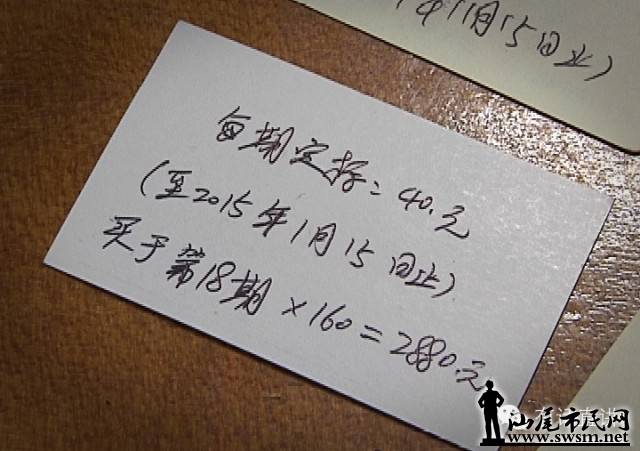 年11月15日止)
每期定标:40.元
(至2015年1月15日止)
买于第18期×160=2880.元
汕尾市民网
www.swsm.net